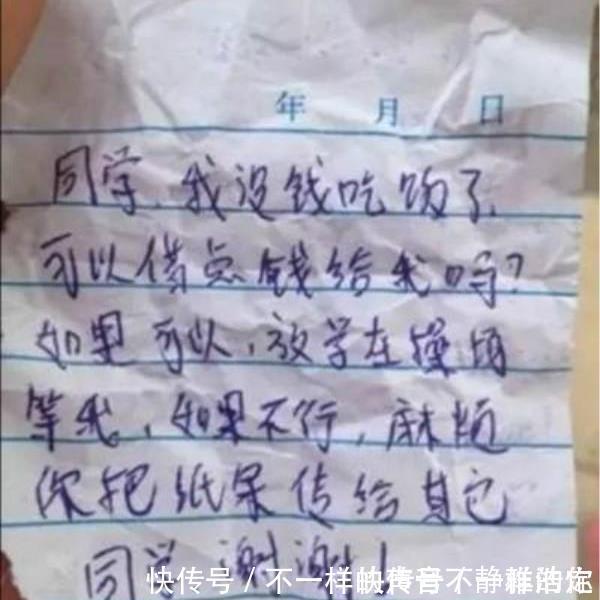 年 月 日
同学,我没钱吃饭了
可以借点钱给我吗?
如果可以,放学在操场
等我,如果不行,麻烦
你把纸条传给其它
同学,谢谢!
快传号/不一样的